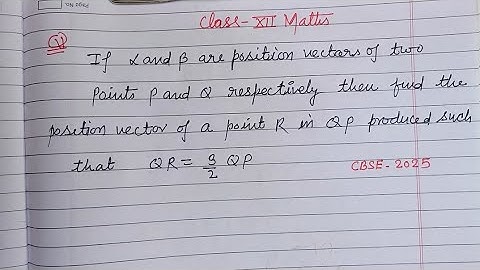 Page No.
Class-XII Maths
Q) If α and β are position vectors of two
points P and Q respectively then find the
position vector of a point R in QP produced such
that QR = 3/2 QP
CBSE-2025